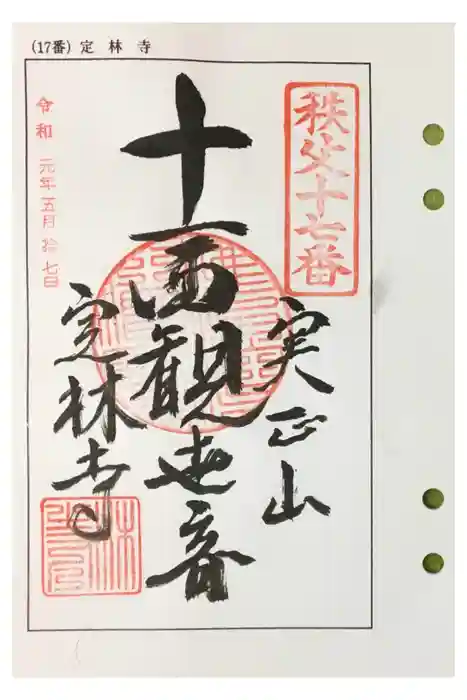 (17番) 定林寺
秩父十七番
実正山
十一面観世音
定林寺
令和 元年五月拾七日